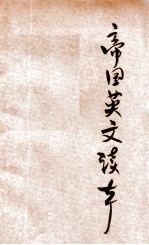 帝国英文读本